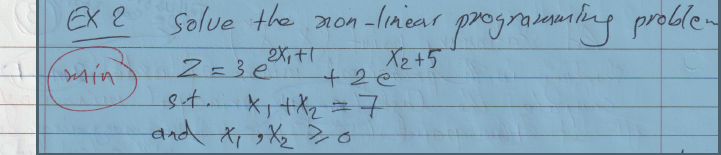 EX 2 Solve the non-linear programming problem
min Z = 3e^{2x₁+1} + 2e^{x₂+5}
s.t. x₁ + x₂ = 7
and x₁, x₂ ≥ 0